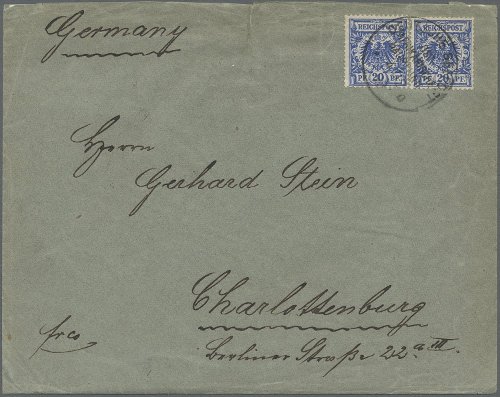 Germany
REICHSPOST REICHSPOST
20 PF. 20 PF.
Herrn
Gerhard Stein
Charlottenburg
frco
Berliner Straße 22 a III.